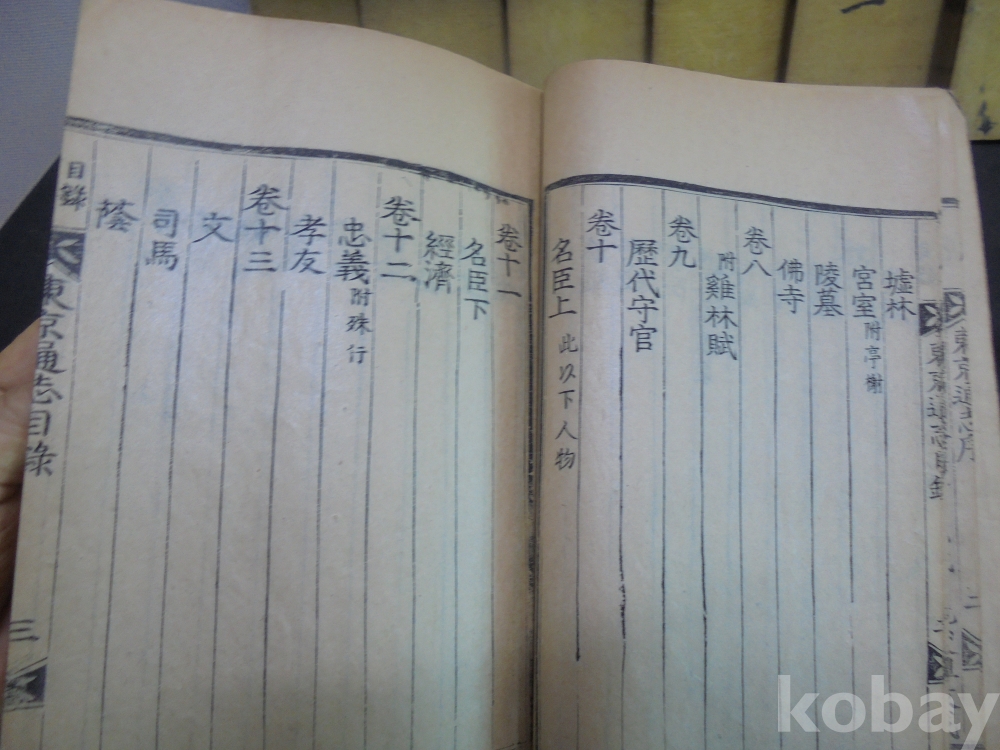 東京通志序
東京通志目錄
墟林
宮室附亭榭
陵墓
佛寺
卷八
附雞林賦
卷九
歷代守官
卷十
名臣上 此以下人物
卷十一
名臣下
經濟
卷十二
忠義附殊行
孝友
卷十三
文
司馬
蔭
目錄
東京通志目錄
三
kobay